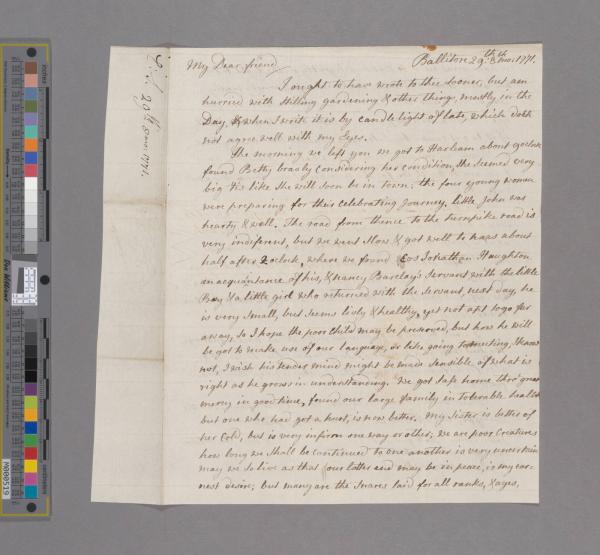 My Dear friend Ballitore 29th 8th mo: 1771.
I ought to have wrote to thee sooner, but am
hurried with Stiling gardening & other things, mostly in the
Day, & when I write it is by candle light of late, which doth
not agree well with my Eyes.
The morning we left you we got to Harlam about 9oclock
found Betty bravly considering her condition, She seemed very
big & is like She will soon be in town; the four young women
were preparing for this celebrating Journey, little John was
hearty & well. The road from thence to the turnpike road is
very indiferent, but we went Slow & got well to naas about
half after 2oclock, where we found Cos Jonathan Haughton
an acquaintance of his, & nancy Barclay's Servant with the little
Boy & a little girl who returned with the servant, next day, he
is very Small, but seems lively & healthy, yet not apt to go far
away, so I hope the poor Child may be preserved, but how he will
be got to make use of our language, or like going to meeting, I know
not, I wish his tender mind might be made sensible of what is
right as he grows in understanding. We got safe home thro'
mercy in good time, found our large family in tolerable health
but one who had got a hurt, is now better. My Sister is better of
her Cold, but is very infirm one way or other, we are poor Creatures
how long we shall be continued to one another is very uncertain
may we so live as that our latter end may be in peace, is my ear-
nest desire; but many are the snares laid for all ranks, & ages,
M000519